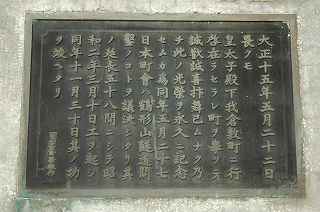 大正十五年五月二十二日
畏クモ
皇太子殿下我倉敷町ニ行
啓在ラセラレ町ヲ擧ツテ
誠歡誠喜抃舞已ムナク乃
チ此ノ光榮ヲ永久ニ記念
セムカ為同年五月二十七
日本町會ハ鶴形山隧道開
鑿ノコトヲ議決シタリ其
ノ延長五十八間ニシテ昭
和二年三月十日工ヲ起シ
同年十一月三十日其ノ功
ヲ竣ヘタリ